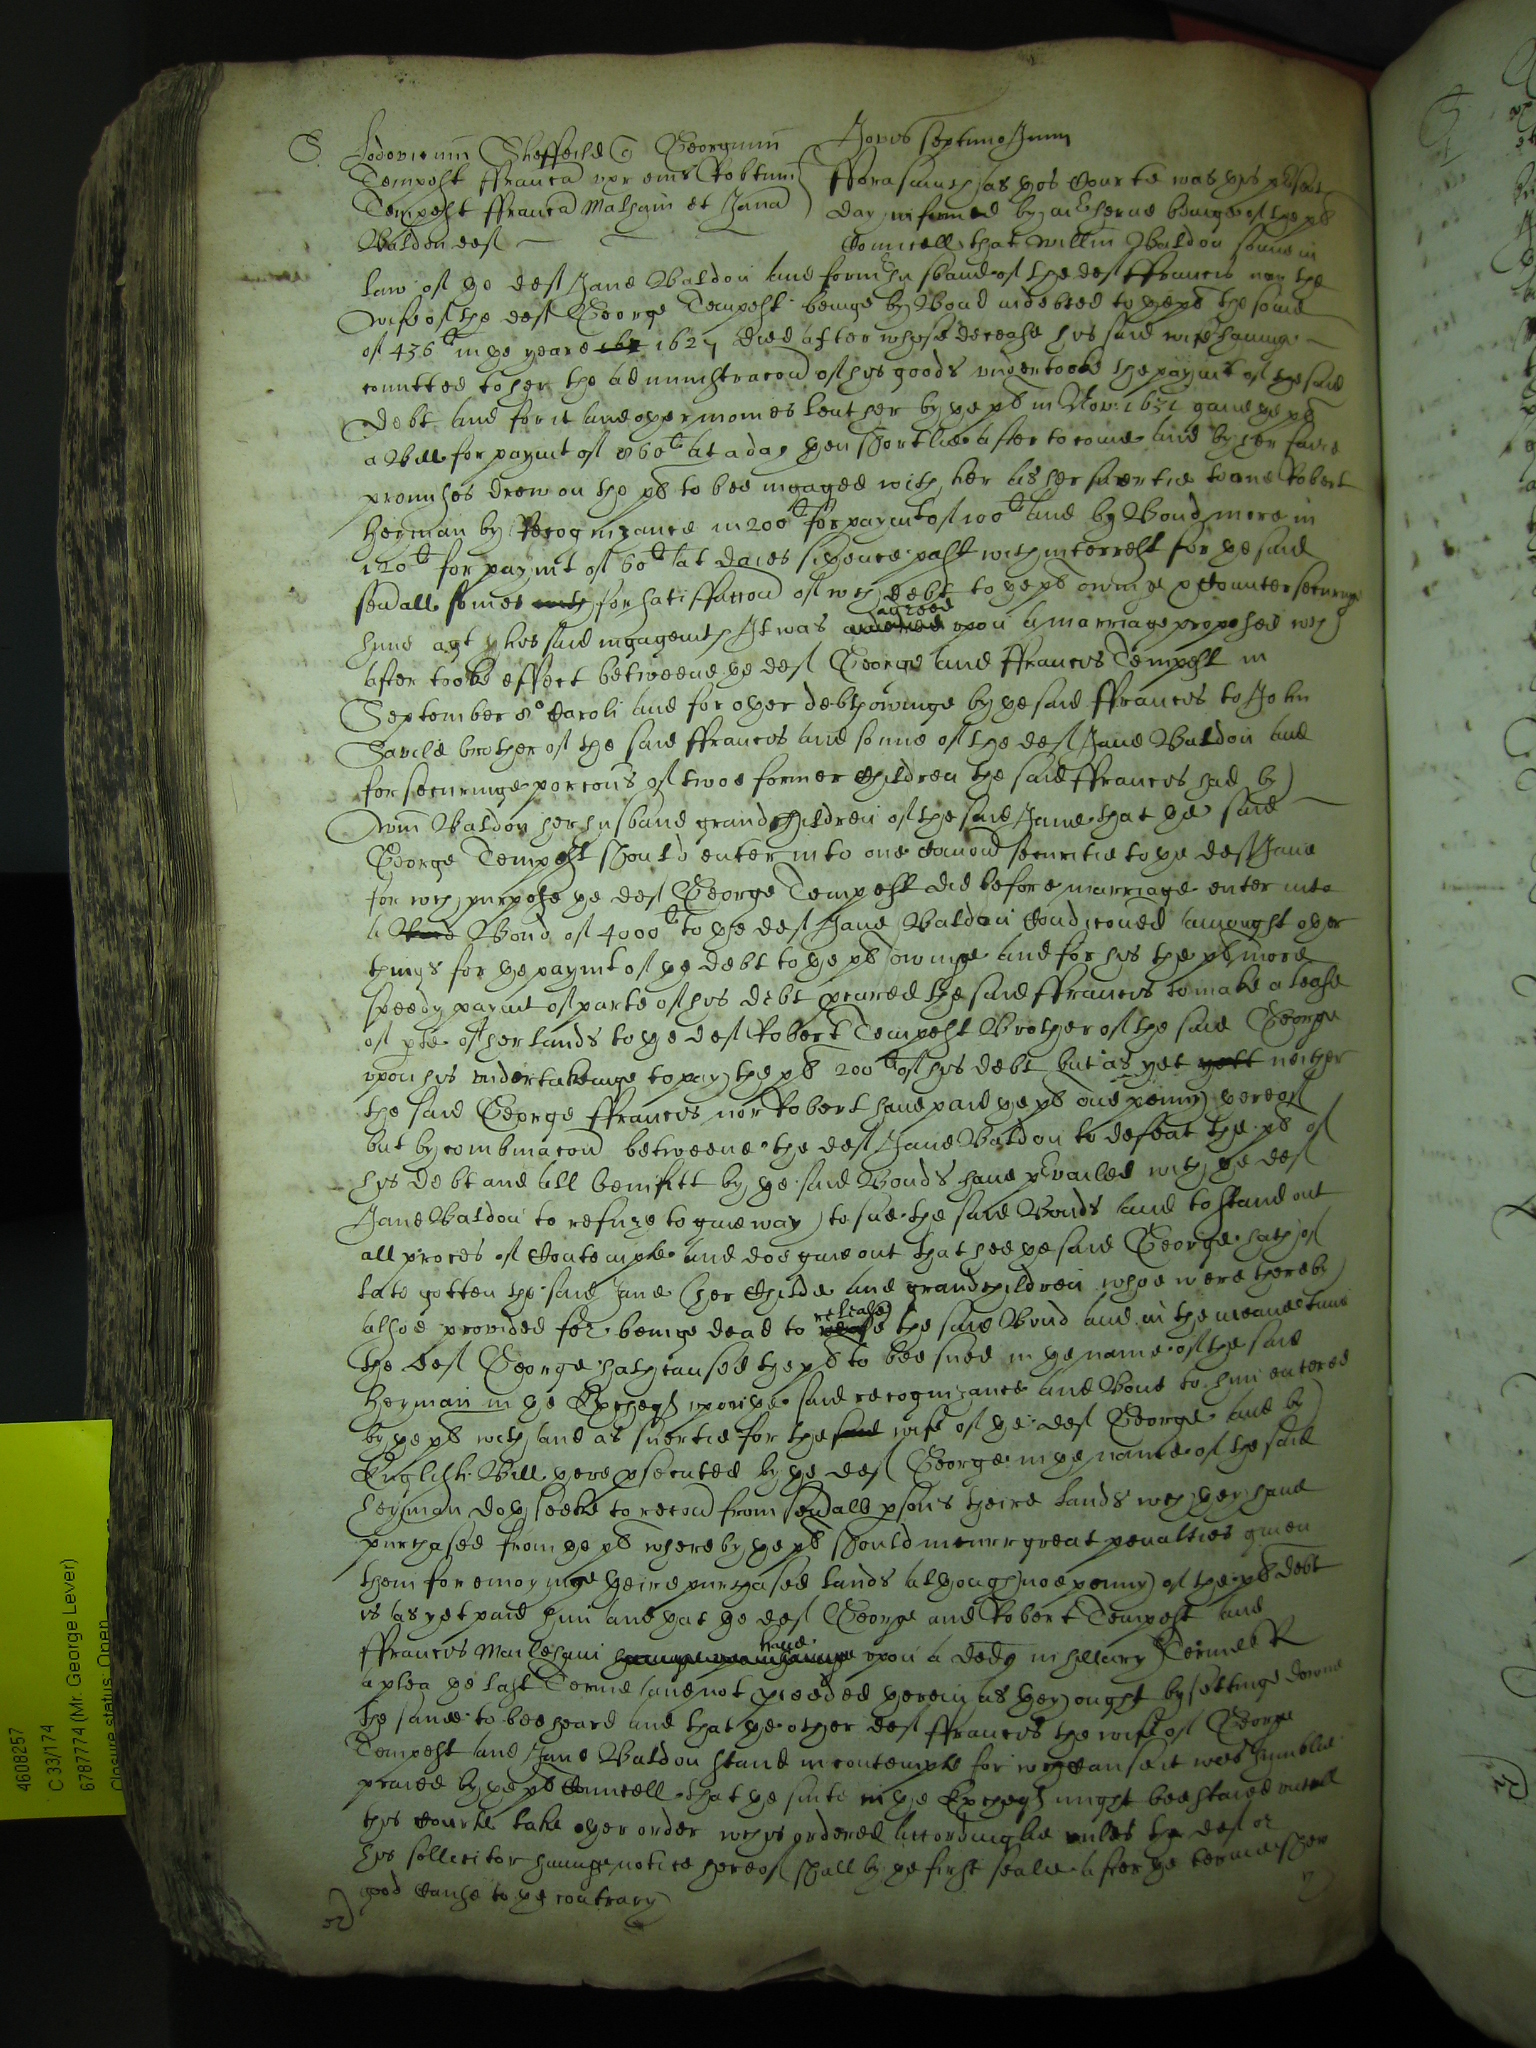 S. Lodovicum Sheffeild q Georgium
Tempest ffranca uxr eius Robtum
Tempest ffranca Malham et Jana
Waldon def
Jovis septimo Junii
fforasmuch as this Courte was this psent
day informed by mr herne beinge of the pl
Councell that Willm Waldon sonne in
law of ye def Jane Waldon and former husband of the def ffrancis now the
wife of the def George Tempest beinge by Bond indebted to ye pl the some
of 436li in ye yeare 1627 died after whose decease his said wife havinge
comitted to her the administracon of his goods undertooke the paymt of the said
debt and for it and other monies lent her by ye pl in Nov: 1631 gave ye pl
a Bill for paymt of 860li at a day then shortlie after to come and by her faire
promises drew on the pl to bee ingaged with her as her suertie to one Robert
heyman by Recognizance in 200li for paymt of 100li and by Bond more in
120li for paymt of 60li at daies sithence past with interrest for ye said
sevall somes for satisfaccon of wch debt to ye pl owinge & countersecuringe
him agt his said ingagemts It was agreed upon a marriage proposed wch
after tooke effect betweene ye def George and ffrancis Tempest in
September 8o Caroli and for other debts owinge by ye said ffrancis to John
Savile brother of the said ffrancis and sonne of the def Jane Waldon and
for securinge porcons of twoe former Children the said ffrancis had by
Wm Waldon her husband grandchildren of the said Jane that ye said
George Tempest should enter into one comon securitie to ye def Jane
for wch purpose ye def George Tempest did before marriage enter into
a Bond of 4000li to ye def Jane Waldon Condiconed amongst other
things for ye paymt of ye debt to ye pl owinge and for his the pl more
speedy paymt of parte of his debt pcured the said ffrancis to make a lease
of pte of her lands to ye def Robert Tempest Brother of the said George
upon his undertakeinge to pay the pl 200li of his debt but as yet neither
the said George ffrancis nor Robert have paid ye pl one penny thereof
but by combinacon betweene the def Jane Waldon to defeat the pl of
his debt and all benifitt by ye said Bonds have pvailed with ye def
Jane Waldon to refuze to give way to sue the said Bonds and to stand out
all proces of Contempte and doe give out that hee ye said George hath of
late gotten the said Jane (her Childe and grandchildren whoe were thereby
alsoe provided for beinge dead to release the said Bond and in the meane tyme
the def George hath caused the pl to bee sued in ye name of the said
heyman in ye Excheqr upon ye said recognizance and Bond to him entered
by ye pl with and as suertie for the wife of ye def George and by
English Bill there psecuted by ye def George in ye name of the said
heyman doth seeke to from sevall psons theire lands wch they have
purchased from ye pl whereby ye pl should incurr great penalties given
them for enioyinge theire purchased lands although noe penny of the pl debt
is as yet paid him and that ye def George and Robert Tempest and
ffrancis have upon a Ded in hillary Terme
a plea ye last Terme and not pceeded therein as they ought by settinge downe
the same to bee heard and that ye other def ffrancis the wife of George
Tempest and Jane Waldon stand in contempte for wch cause it was humblie
praied by ye pl Councell that ye suite in ye Excheqr might bee staied untill
this Courte take other order wch is ordered accordinglie unles the def or
his sollicitor havinge notice hereof shall by ye first seale after ye terme shew
good cause to ye contrary
4608257
C 33/174
6787774 (Mr. George Lever)
Closure status: Open